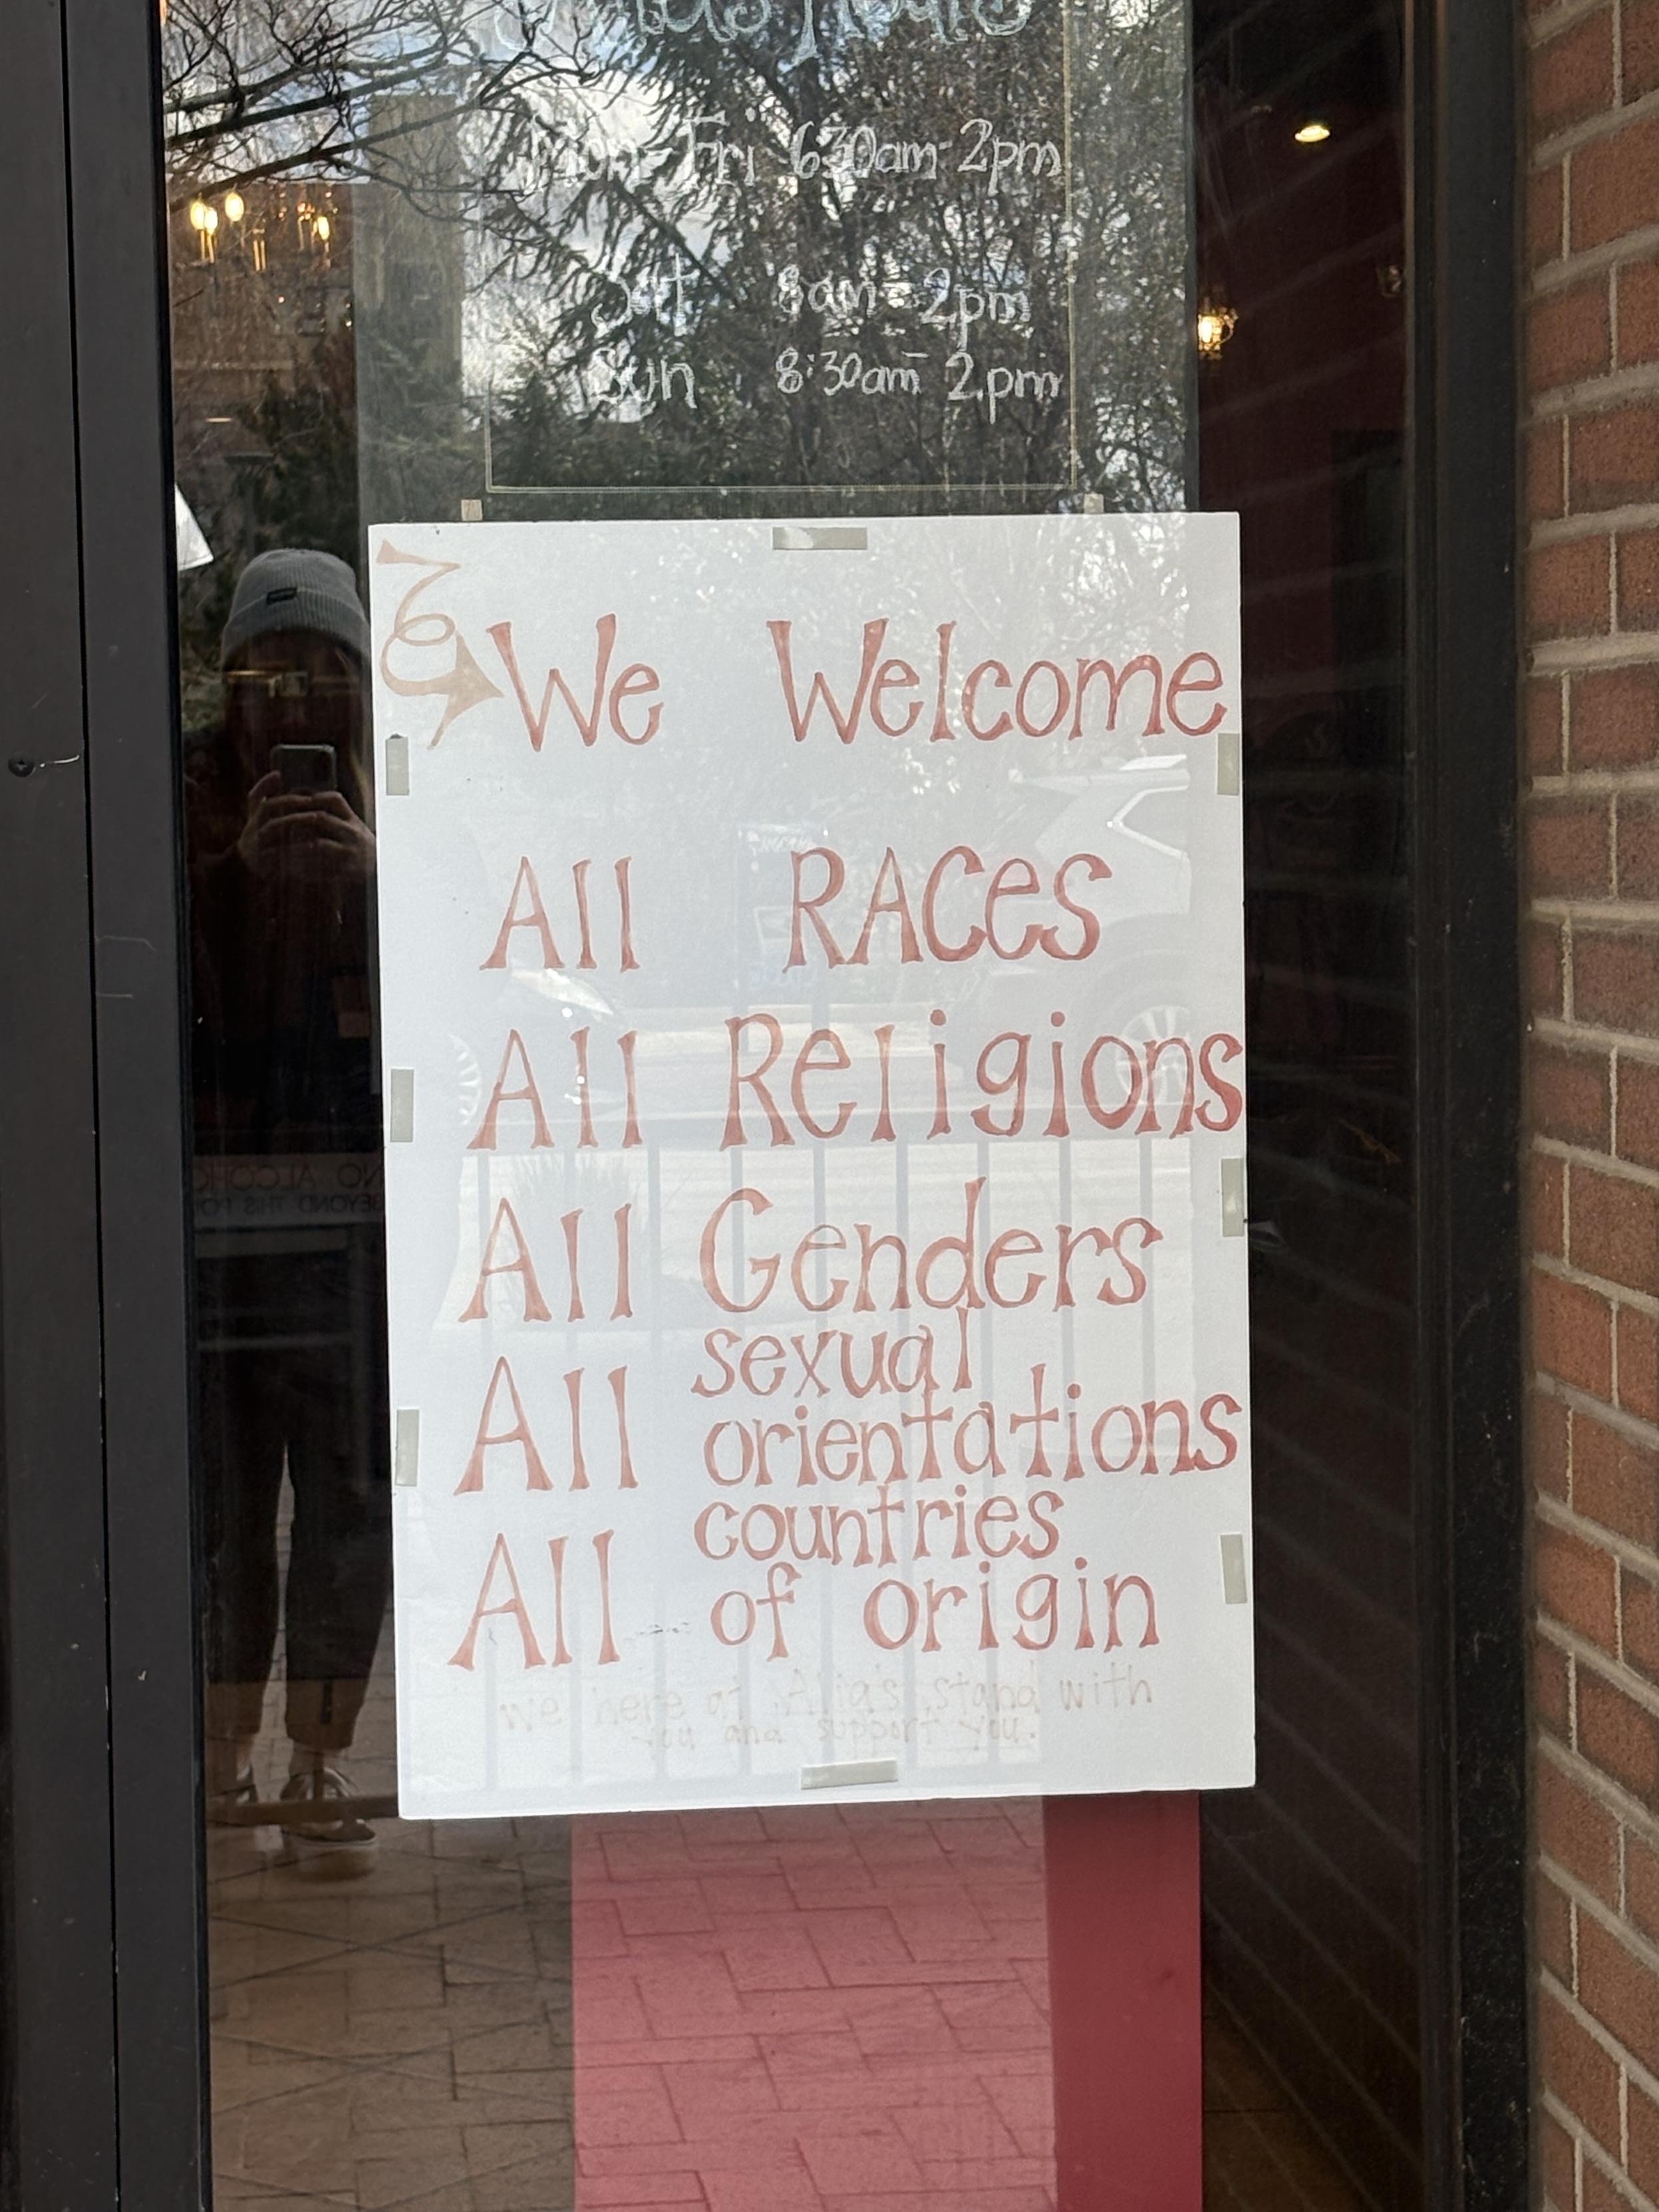 Mon-Fri 630am-2pm
Sat 8am-2pm
Sun 8:30am-2pm
We Welcome
All RACes
All Religions
All Genders
All sexual
orientations
All countries
of origin
we here at Alia's stand with
you and support you.
NO ALCOHO
BEYOND THIS PO